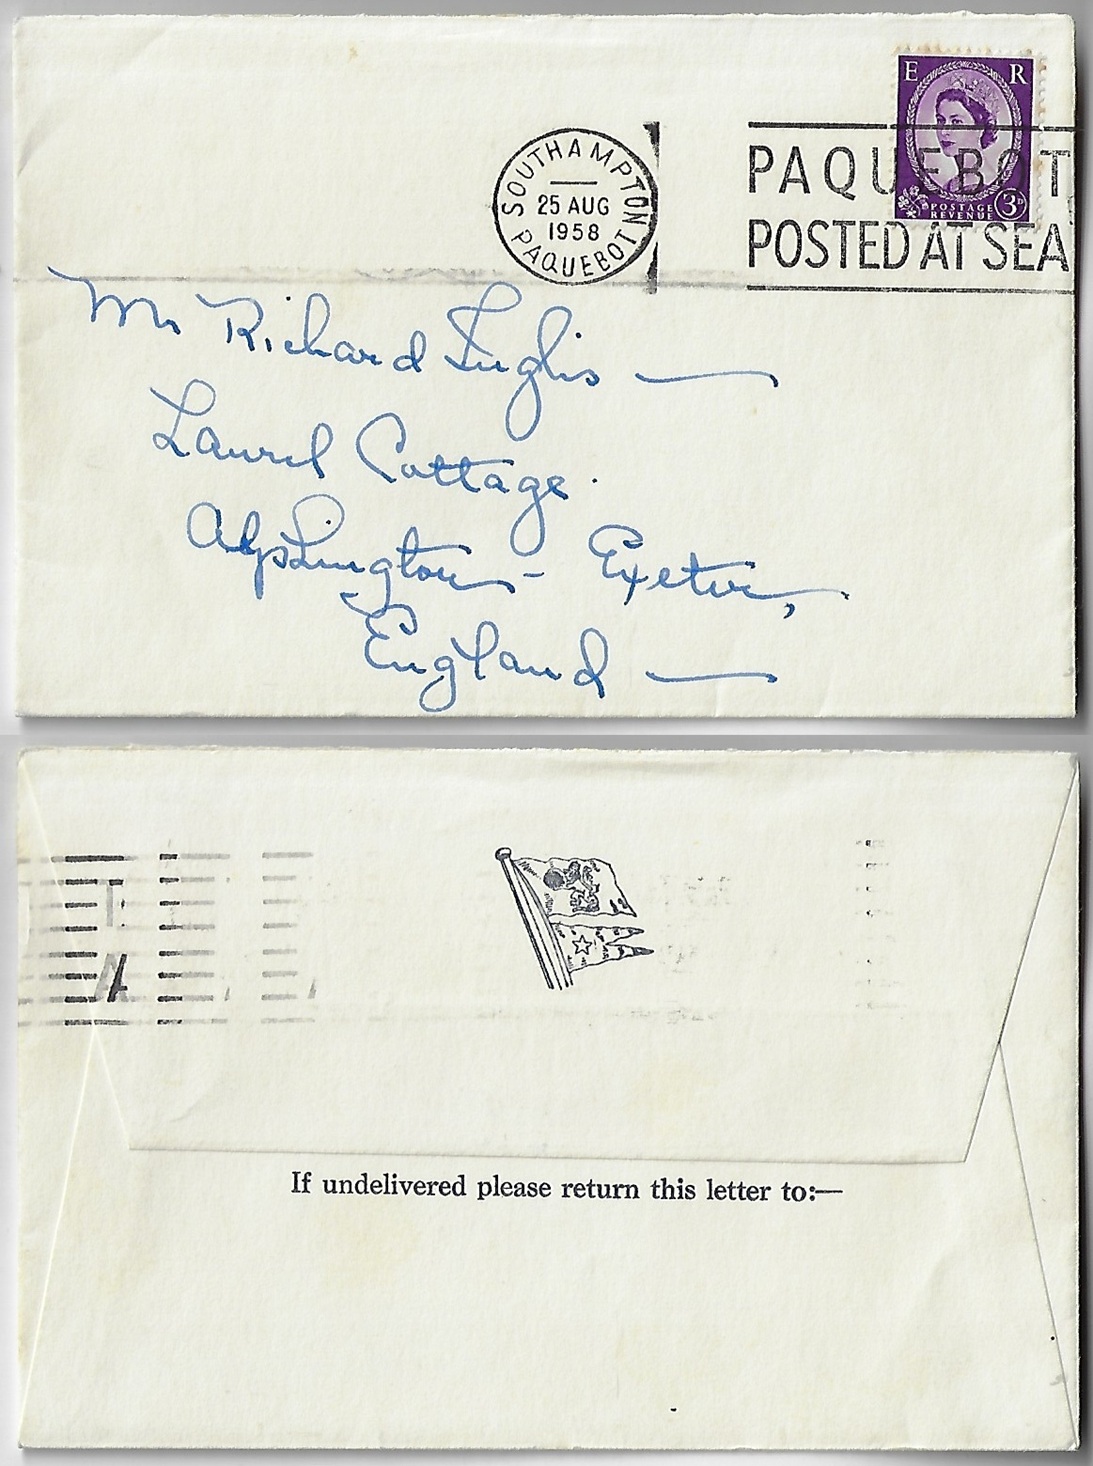 E R
POSTAGE
REVENUE
3D
SOUTHAMPTON
25 AUG
1958
PAQUEBOT
PAQUEBOT
POSTED AT SEA
Mr Richard Inglis —
Laurel Cottage.
Alphington - Exeter,
England —
If undelivered please return this letter to:—